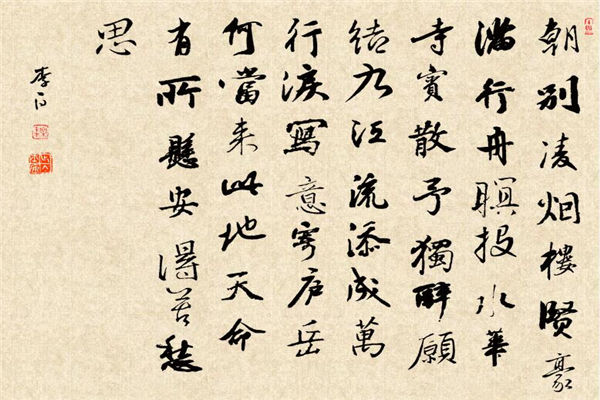 朝別凌烟樓賢豪
滿行舟暝投永華
寺賓散予獨醉願
結九江流添成萬
行淚寫意寄庐岳
何當来此地天命
有所懸安得苦愁
思
李白